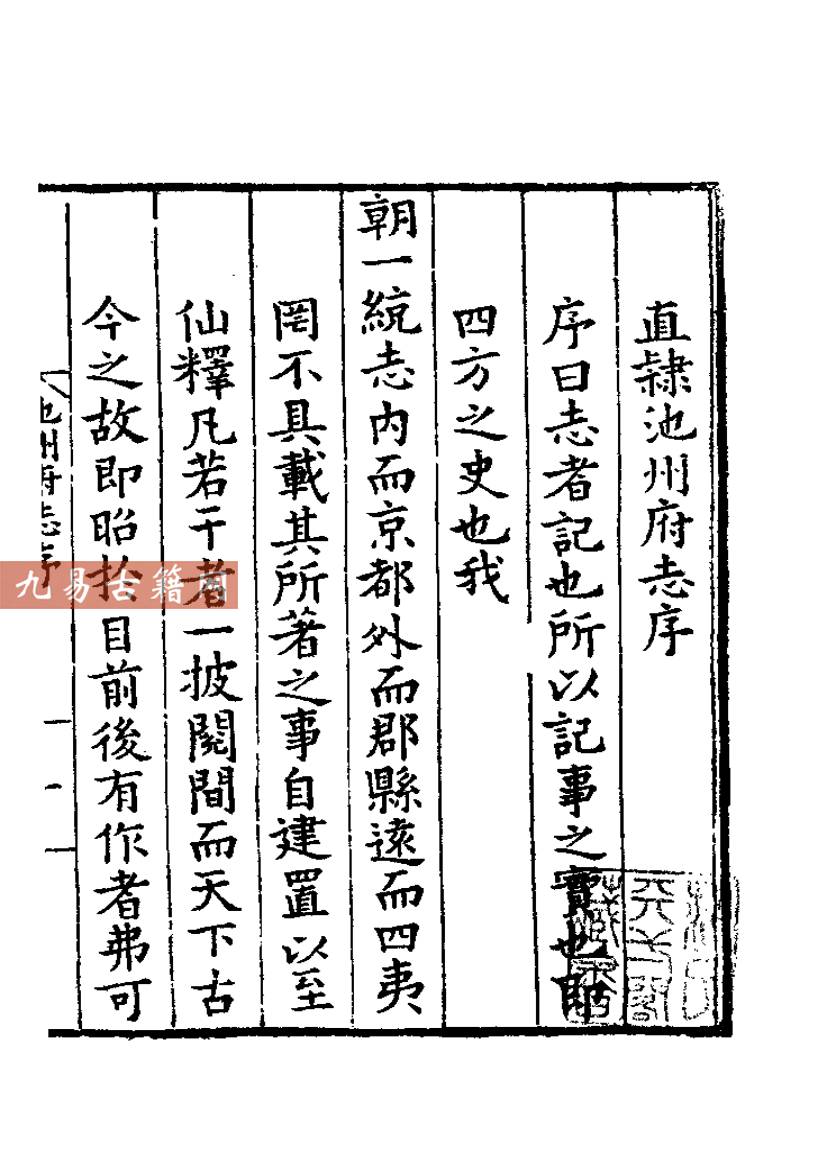 直隸池州府志序
序曰志者記也所以記事之實也即
四方之史也我
朝一統志內而京都外而郡縣遠而四夷
罔不具載其所著之事自建置以至
仙釋凡若干者一披閱間而天下古
今之故即昭於目前後有作者弗可
池州府志序
一
九易古籍网